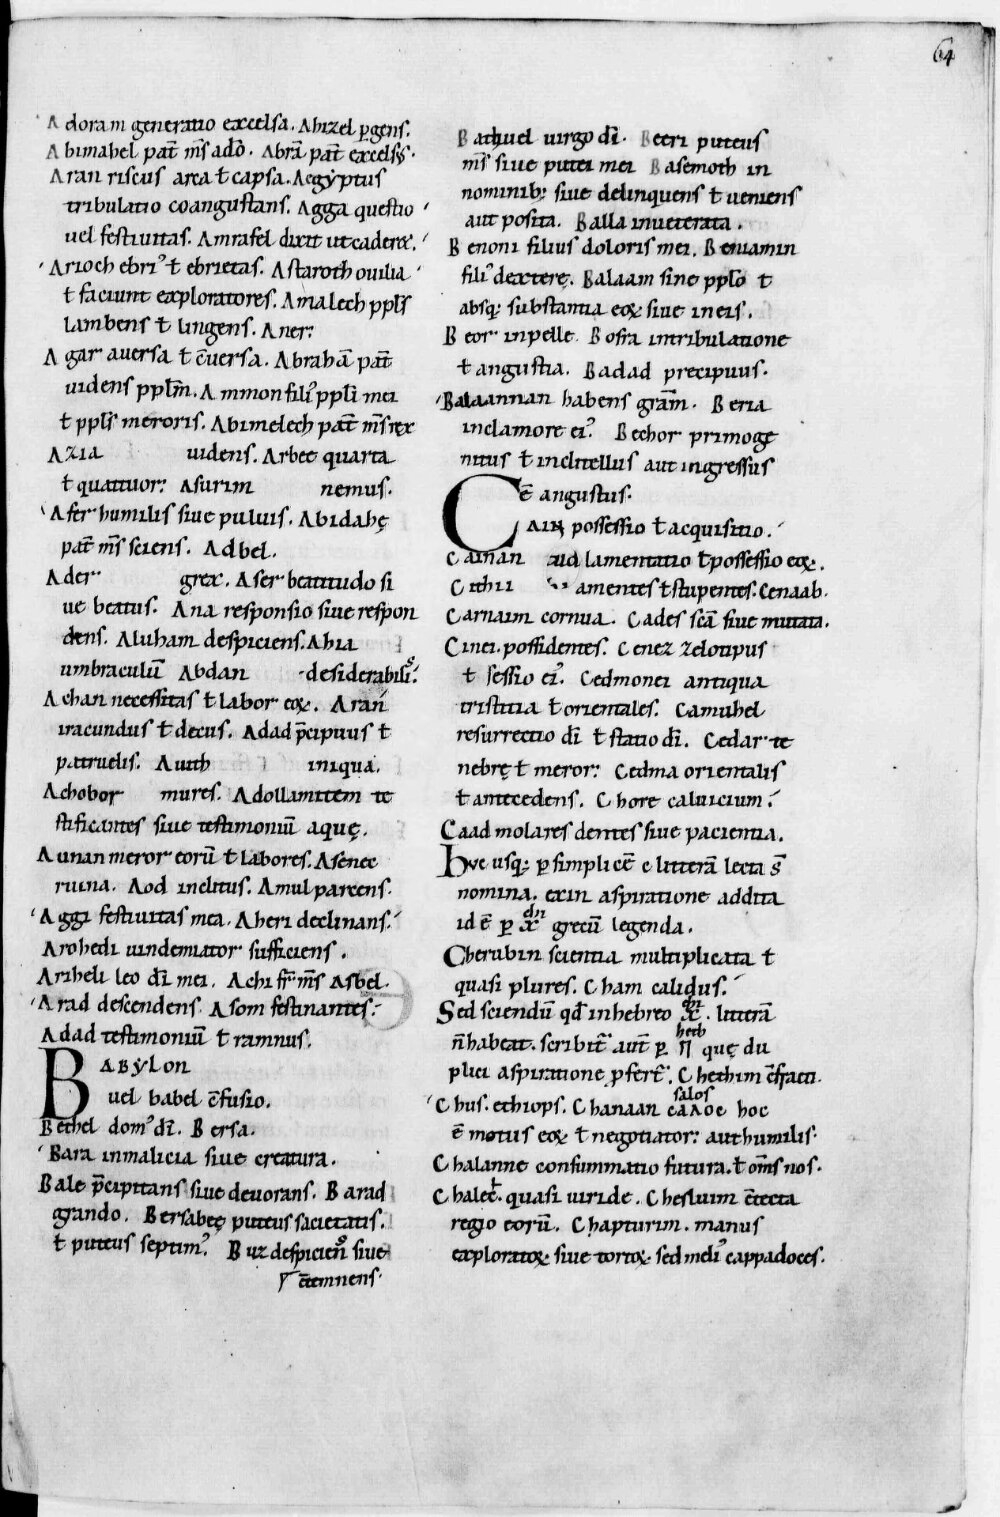 64
Adoram generatio excelsa. Ahizel ꝑgens.
Abimahel pat̄ m̄s adō. Abrā pat̄ excelsꝰ.
Aran riscus arca ł capsa. Aegẏptus
tribulatio coangustans. Agga questio
uel festiuitas. Amrafel dixit ut caderꝫ.
Arioch ebriꝰ ł ebrietas. Astaroth ouilia
ł faciunt exploratores. Amalech ppl̄s
lambens ł lingens. Aner:
Agar auersa ł c̄uersa. Abrahā pat̄
uidens ppl̄m. Ammon filiꝰ ppl̄i mei
ł ppl̄s meroris. Abimelech pat̄ m̄s rex
Azia uidens. Arbee quarta
ł quattuor: Asurim nemus.
Afer humilis siue puluis. Abidahę
pat̄ m̄s sciens. Adbel.
Ader grex. Aser beatitudo si
ue beatus. Ana responsio siue respon
dens. Aluham despiciens. Ahia
umbraculū Abdan desiderabilis.
Achan necessitas ł labor eoꝝ. Aran
iracundus ł decus. Adad p̄cipuus ł
patruelis. Auith iniqua.
Achobor mures. Adollamitem te
stificantes siue testimoniū aquę.
Aunan meror eorū ł labores. Asenec
ruina. Aod inclitus. Amul parcens.
Aggi festiuitas mea. Aheri declinans.
Arohedi uindemiator sufficiens.
Ariheli leo dī mei. Achi fr̄ m̄s Asbel.
Arad descendens. Asom festinantes.
Adad testimoniū ł ramnus.
BABẎLON
uel babel c̄fusio.
Bethel domꝰ dī. Bersa.
Bara inmalicia siue creatura.
Bale p̄cipitans siue deuorans. Barad
grando. Bersabeę puteus sacietatis.
ł puteus septimꝰ. Buz despiciens siue
c̄temnens.
Bathuel virgo dī. Beeri puteus
m̄s siue putei mei Basemoth in
nominibꝫ siue delinquens ł ueniens
aut posita. Balla inueterata.
Benoni filius doloris mei. Beniamin
filiꝰ dexterę. Balaam sine ppl̄o ł
absqꝫ substantia eoꝝ siue in eis.
Beor inpelle. Bosra intribulatione
ł angustia. Badad precipuus.
Balaannan habens grām. Beria
inclamore eiꝰ. Bechor primoge
nitus ł inclitellus aut ingressus
ē angustus.
CAIN possessio ł acquisitio.
Cainan lamentatio ł possessio eoꝝ.
Cithii amentes ł stupentes. Cenaab.
Carnaim cornua. Cades scā siue mutata.
Cinei. possidentes. Cenez zelotipus
ł sessio eiꝰ. Cedmonei antiqua
tristitia ł orientales. Camuhel
resurrectio dī ł statio dī. Cedar te
nebrę ł meror: Cedma orientalis
ł antecedens. Chore caluicium.
Caad molares dentes siue pacientia.
Hve usqꝫ ꝑ simplicē c litterā lecta s̄
nomina. exin aspiratione addita
id ē ꝑ x̄ grecū legenda.
Cherubin scientia multiplicata ł
quasi plures. Cham calidus.
Sed sciendū qd̄ inhebreo x̄. litterā
n̄ habeat. scribit̄ aut̄ ꝑ ח quę du
plici aspiratione ꝓfert̄. Chethim c̄fracti.
salos
Chus. ethiops. Chanaan cαλος hoc
ē motus eoꝝ ł negotiator: aut humilis.
Chalanne consummatio futura. ł om̄s nos.
Chalec. quasi uiride. Chesluim c̄tecta
regio eorū. Chapturim. manus
exploratoꝝ siue tortoꝝ. sed meliꝰ cappadoces.